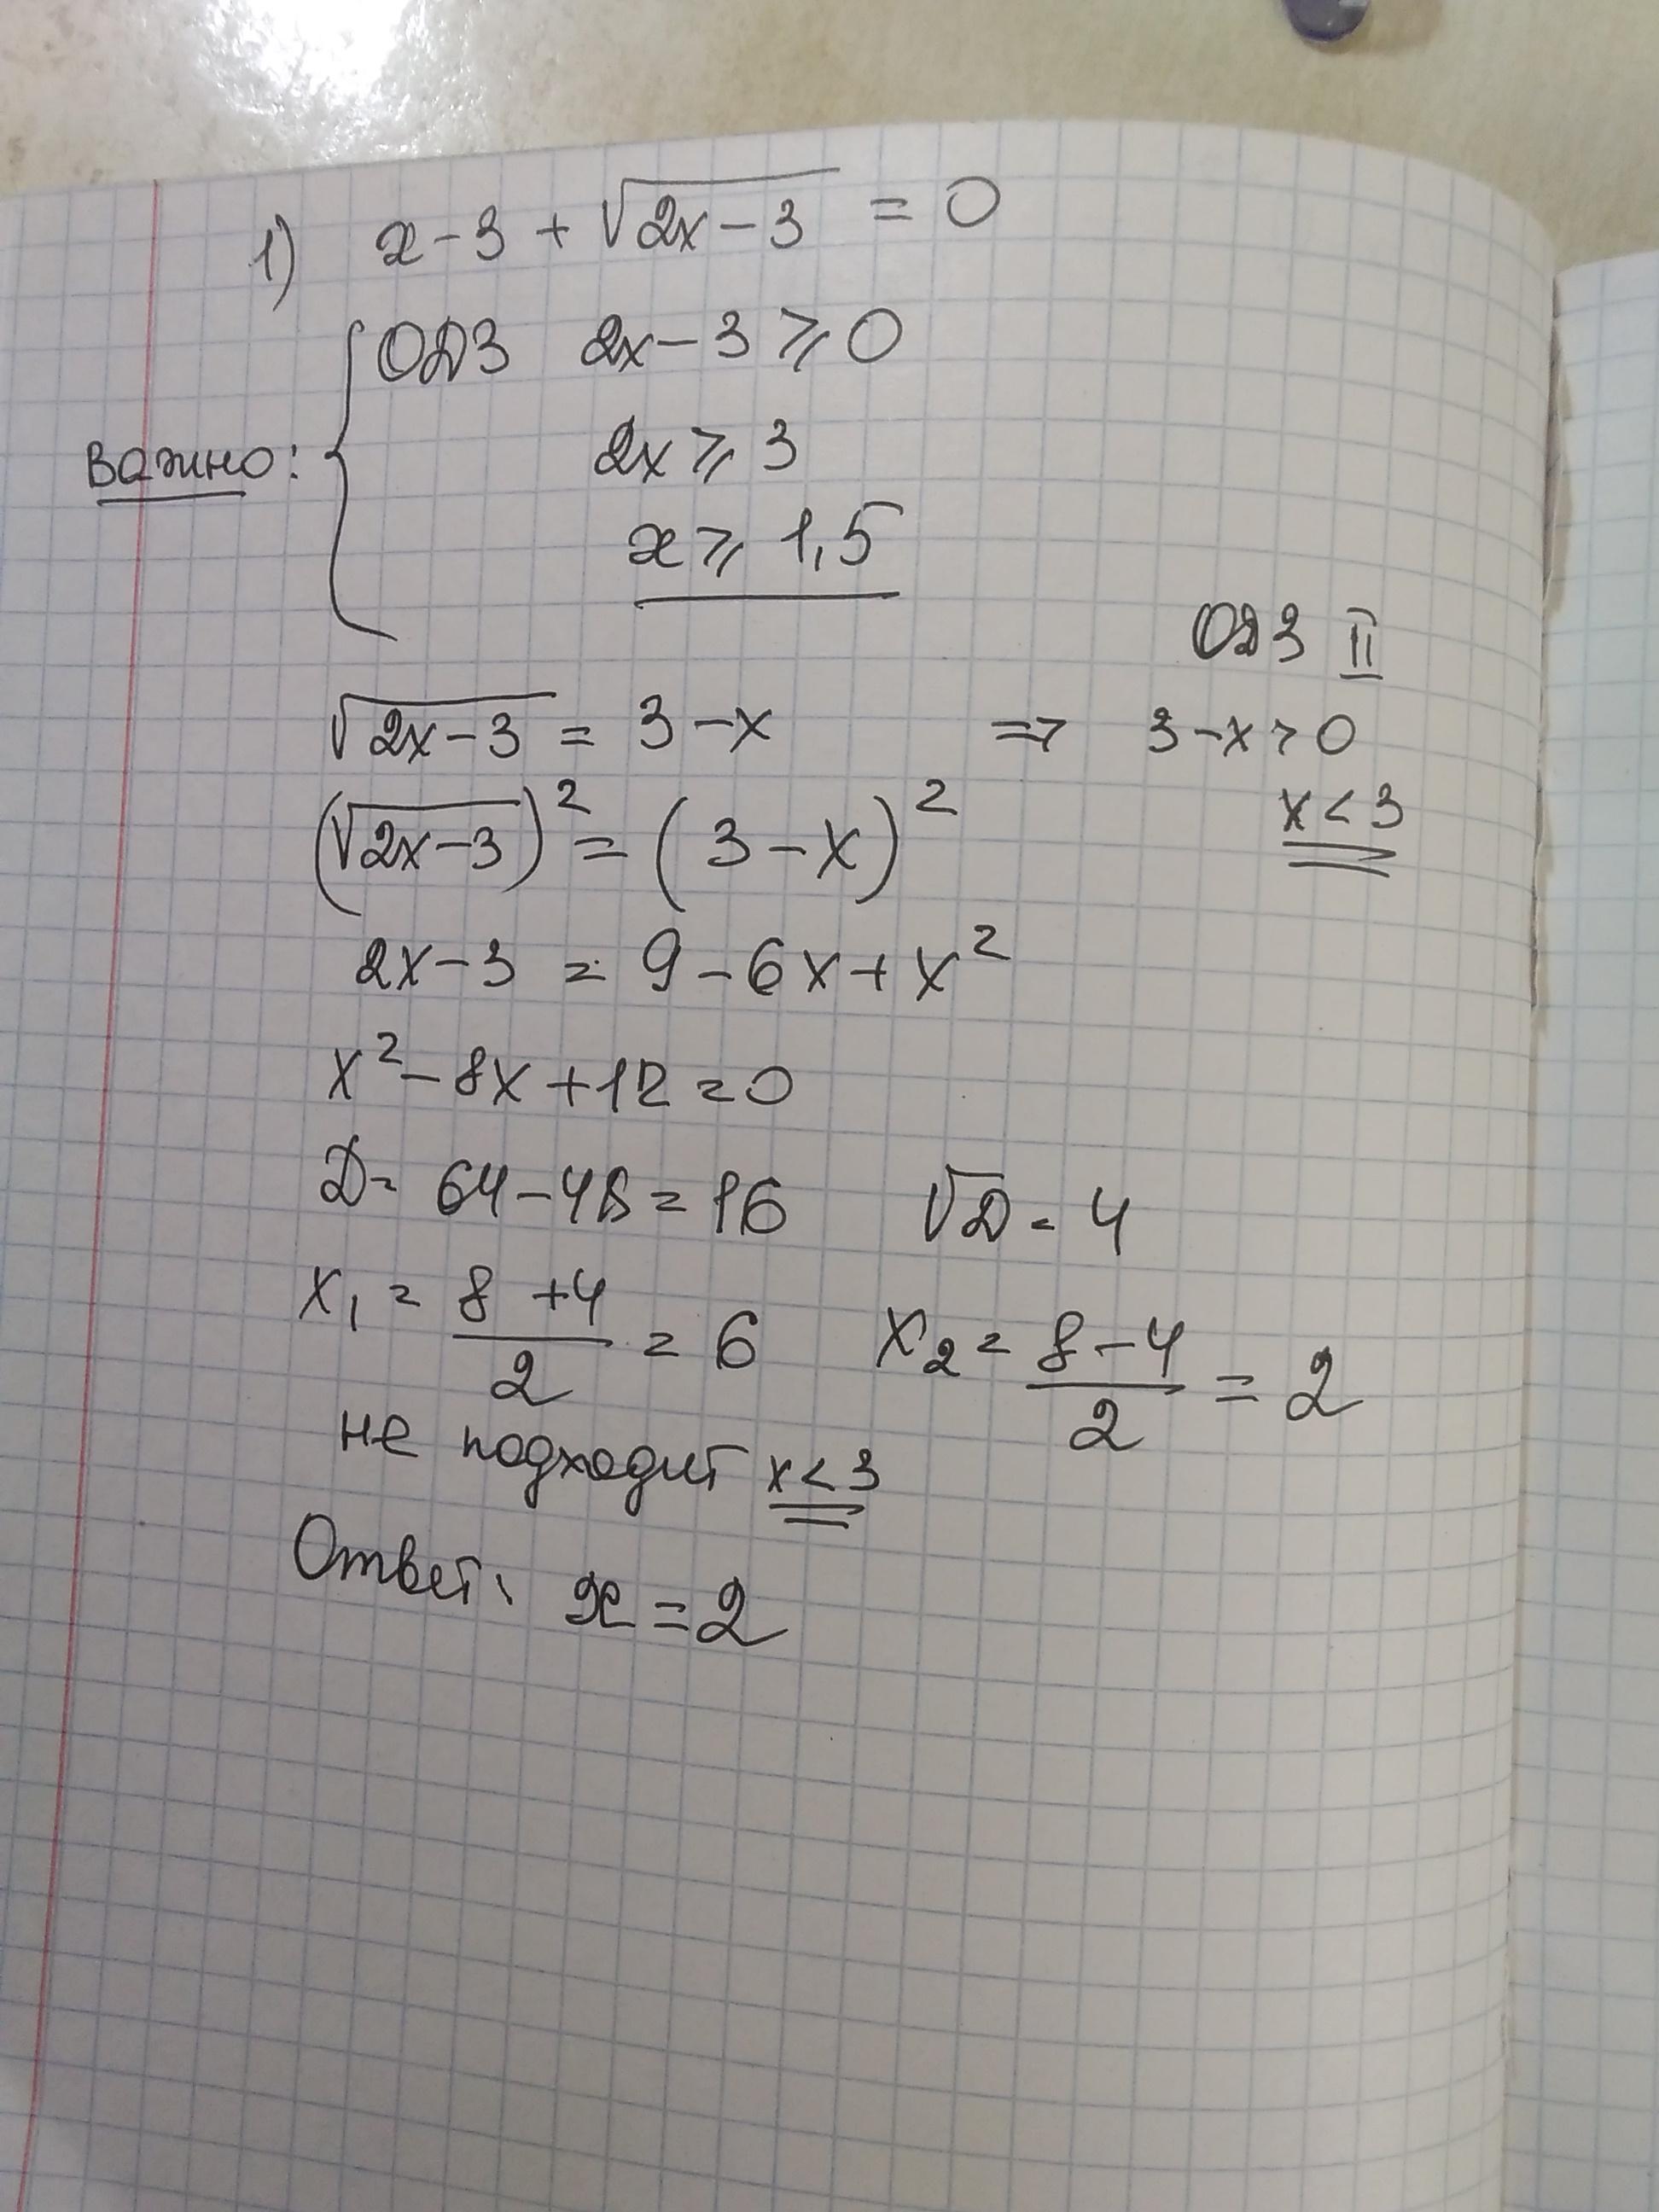 1) x - 3 + √(2x - 3) = 0
ОДЗ 2x - 3 ⩾ 0
Важно: {
2x ⩾ 3
x ⩾ 1,5
ОДЗ II
√(2x - 3) = 3 - x => 3 - x > 0
x < 3
(√(2x - 3))² = (3 - x)²
2x - 3 = 9 - 6x + x²
x² - 8x + 12 = 0
D = 64 - 48 = 16 √D = 4
x₁ = (8 + 4)/2 = 6 x₂ = (8 - 4)/2 = 2
не подходит x < 3
Ответ: x = 2